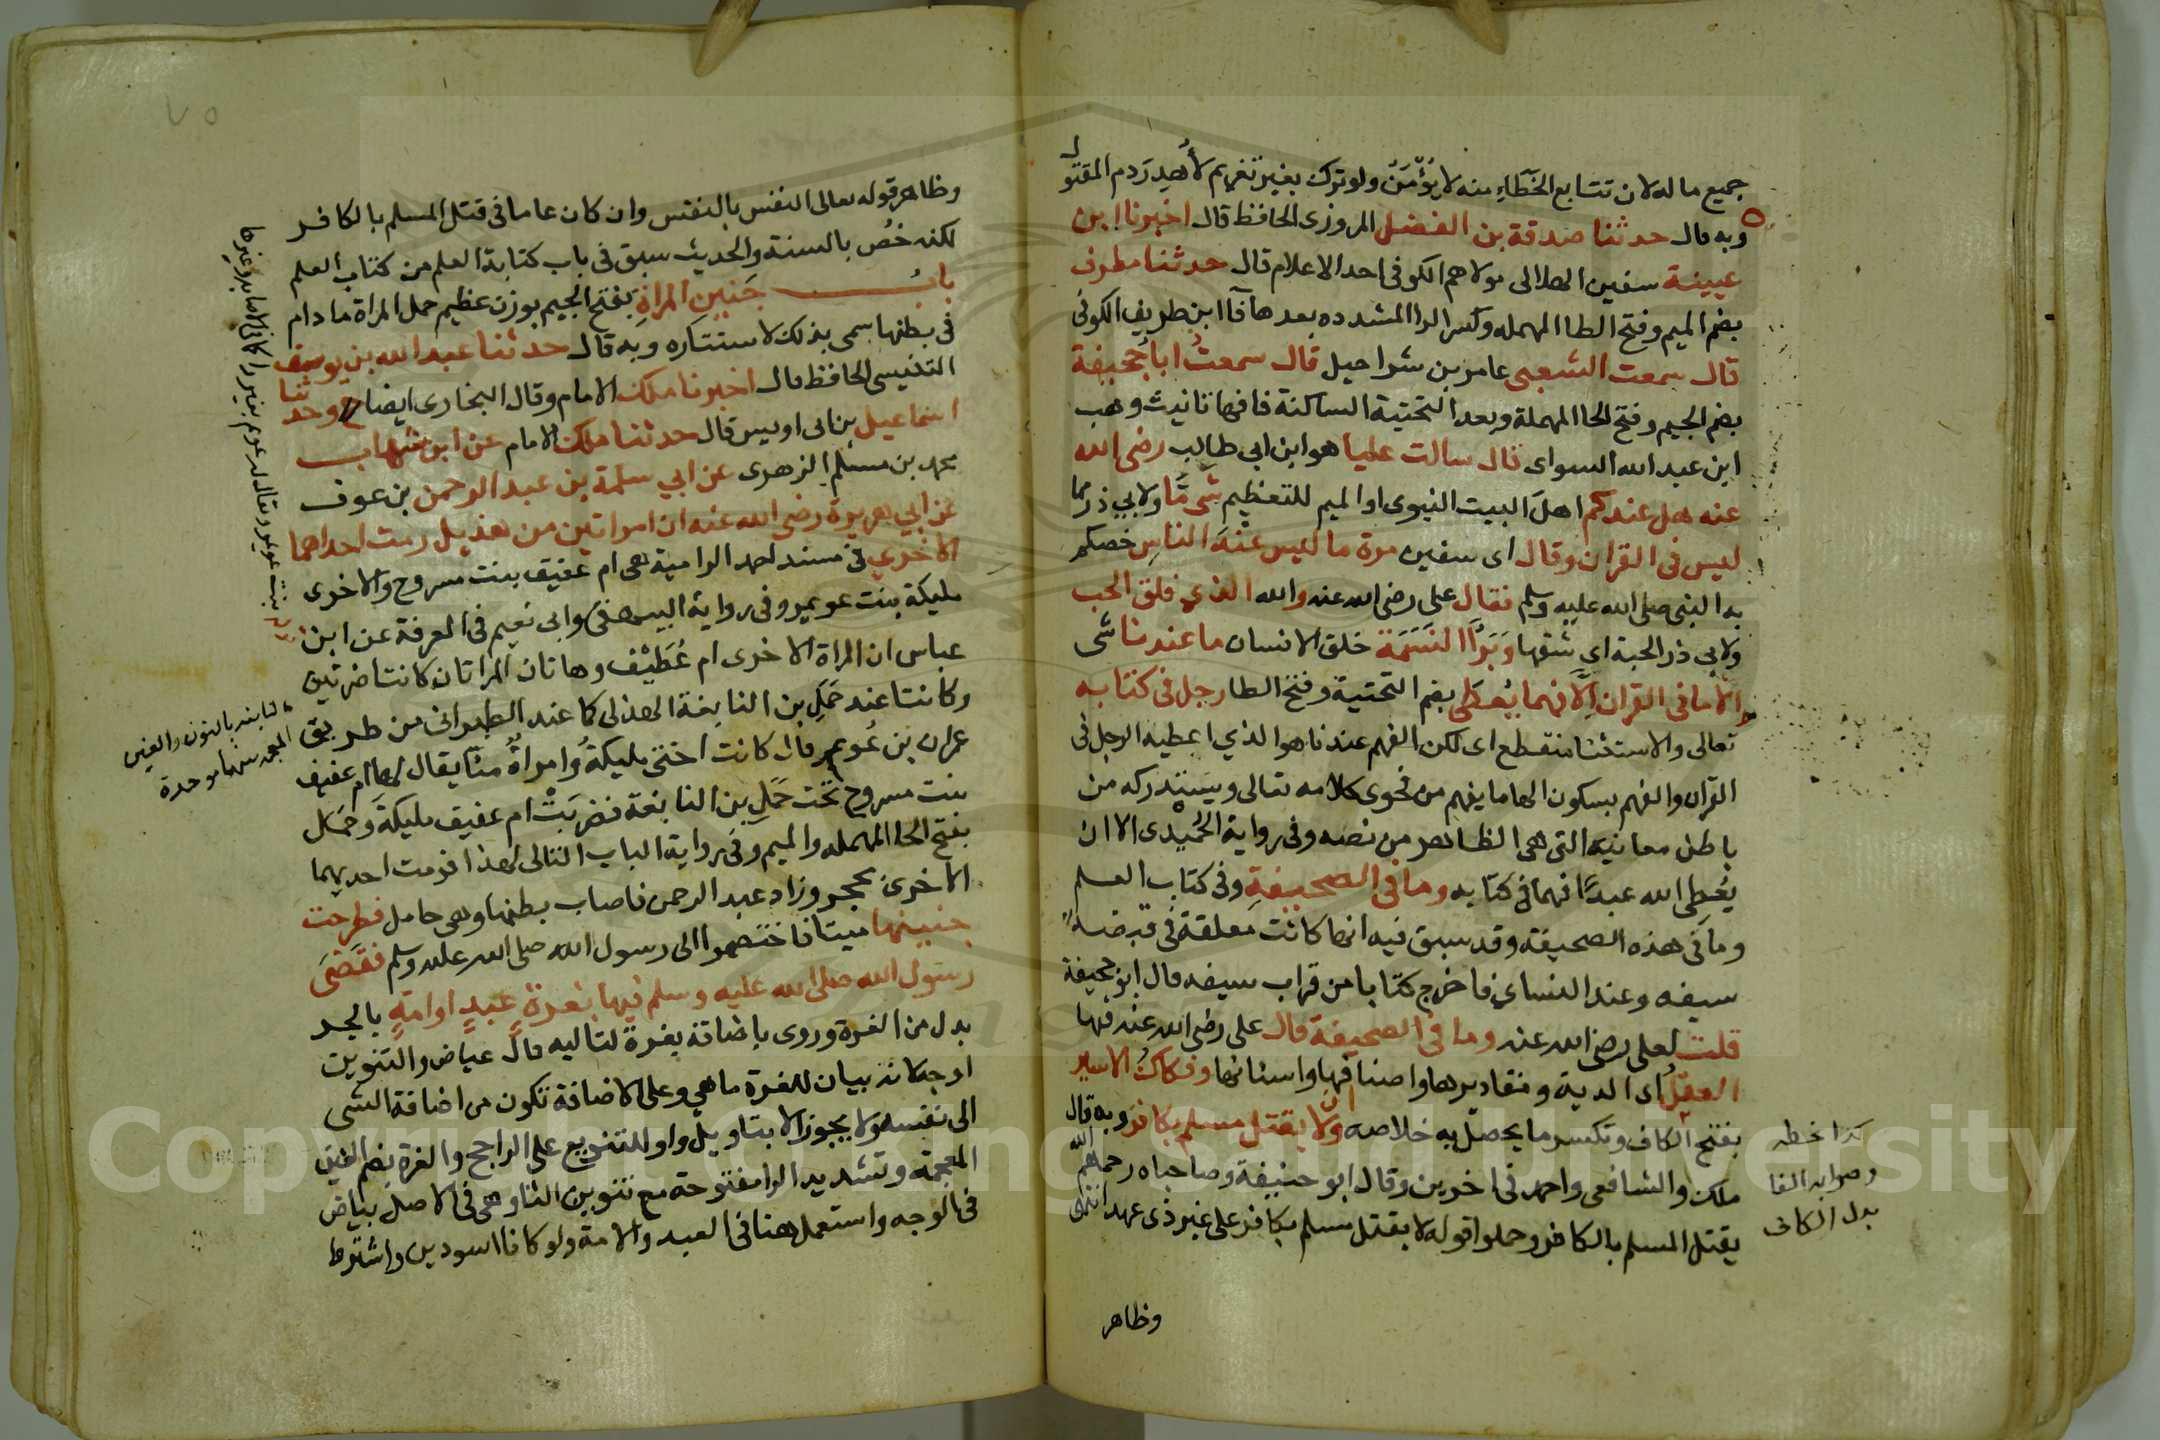 جميع ماله لان تتابع الخطاء منه لا يؤمن ولو ترك بغير تغريم لأهدر دم المقتول
وبه قال حدثنا صدقة بن الفضل المروزى الحافظ قال اخبرنا ابن
عيينة سفين الهلالى مولاهم الكوفى احد الاعلام قال حدثنا مطرف
بضم الميم وفتح الطا المهمله وكسر الرا المشدده بعدها فآ ابن طريف الكوفى
قال سمعت الشعبى عامر بن شراحيل قال سمعت ابا جحيفة
بضم الجيم وفتح الحا المهملة وبعد التحتية الساكنة فا فها تانيث وهب
ابن عبد الله السواى قال سالت عليا هو ابن ابى طالب رضى الله
عنه هل عندكم اهل البيت النبوى او الميم للتعظيم شى مّا ولابي ذر مما
ليس فى القران وقال اى سفين مرة ما ليس عند الناس خصكم
به النبى صلى الله عليه وسلم فقال على رضى الله عنه والله الذي فلق الحب
ولابي ذر الحبة اي شقها وبرأ النسمة خلق الانسان ما عندنا شى
الا ما فى القران الا فهما يعطى بضم التحتية وفتح الطا رجل فى كتابه
تعالى والاستثنا منقطع اى لكن الفهم عندنا هو الذي اعطيه الرجل فى
القران والفهم بسكون الها ما يفهم من فحوى كلامه تعالى ويستدركه من
باطن معانيه التى هى الظاهر من نصه وفى رواية الحميدى الا ان
يعطى الله عبدًا فهما فى كتابه وما فى الصحيفة وفى كتاب العلم
وما فى هذه الصحيفة وقد سبق فيه انها كانت معلقة فى قبضة
سيفه وعند النساي فاخرج كتابا من قراب سيفه قال ابو جحيفة
قلت لعلى رضى الله عنه وما فى الصحيفة قال على رضى الله عنه فيها
العقل اى الدية ومقاديرها واصنافها واسنانها وفكاك الاسير
بفتح الكاف وتكسر ما يحصل به خلاصه وان لا يقتل مسلم بكافر وبه قال
ملك والشافعى واحمد فى اخرين وقال ابو حنيفة وصاحباه رحمهم الله
يقتل المسلم بالكافر وحملوا قوله لا يقتل مسلم بكافر على غير ذى عهد انتهى
كذا بخطه
وصوابه الفا
بدل الكاف
وظاهر
٧٥
وظاهر قوله تعالى النفس بالنفس وان كان عاما فى قتل المسلم بالكافر
لكنه خص بالسنة والحديث سبق فى باب كتابة العلم من كتاب العلم
باب جنين المراة بفتح الجيم بوزن عظيم حمل المراة ما دام
فى بطنها سمى بذلك لاستتاره وبه قال حدثنا عبد الله بن يوسف
التنيسى الحافظ قال اخبرنا ملك الامام وقال البخارى ايضا ح وحدثنا
اسماعيل بن ابى اويس قال حدثنا ملك الامام عن ابن شهاب
محمد بن مسلم الزهرى عن ابي سلمة بن عبد الرحمن بن عوف
عن ابي هريرة رضى الله عنه ان امراتين من هذيل رمت احداهما
الاخرى فى مسند احمد الرامية هى ام عفيف بنت مسروح والاخرى
مليكة بنت عويمر وفى رواية البيهقى وابى نعيم فى المعرفة عن ابن
عباس ان المراة الاخرى ام غطيف وهاتان المراتان كانتا ضرتين
وكانتا عند حمل بن النابغة الهذلى كما عند الطبرانى من طريق
عمران بن عويمر قال كانت اختى مليكة وامراة منا يقال لها ام عفيف
بنت مسروح تحت حمل بن النابغة فضربت ام عفيف مليكة وحمل
بفتح الحا المهمله والميم وفى رواية الباب التالى لهذا فرمت احديهما
الاخرى بحجر وزاد عبد الرحمن فاصاب بطنها وهى حامل فطرحت
جنينها ميتا فاختصموا الى رسول الله صلى الله عليه وسلم فقضى
رسول الله صلى الله عليه وسلم فيها بغرة عبد او امة بالجر
بدل من الغرة وروى باضافة بغرة لتاليه قال عياض والتنوين
اوجه لانه بيان للغرة ما هي وعلى الاضافة تكون من اضافة الشى
الى نفسه ولا يجوز الا بتاويل واو للتنويع على الراجح والغرة بضم الغين
المعجمة وتشديد الرا مفتوحة مع تنوين التا وهى فى الاصل بياض
فى الوجه واستعمل هنا فى العبد والامة ولو كانا اسودين واشترط
بنت عويمر ويقال له عويم بغير را
النابغة بالنون والغين
المعجمة بينهما موحدة
Copyright © King Saud University